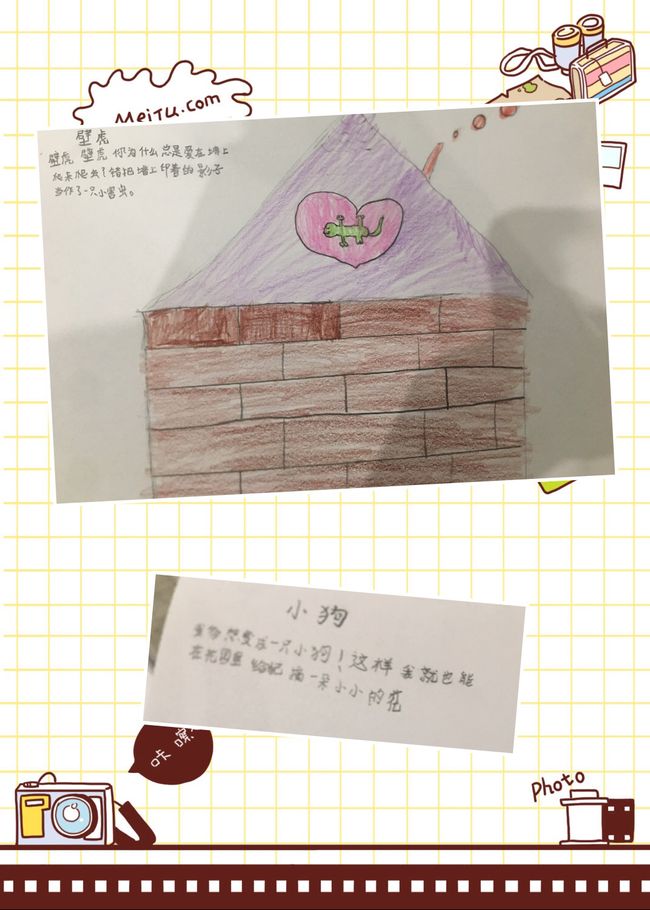 MeiTu.com
壁虎
壁虎 壁虎 你为什么总是爱在墙上
爬来爬去？错把墙上印着的影子
当作了一只小害虫。
小狗
我多想变成一只小狗！这样我就也能
在花园里 给妈摘一朵小小的花
咔嚓
Photo